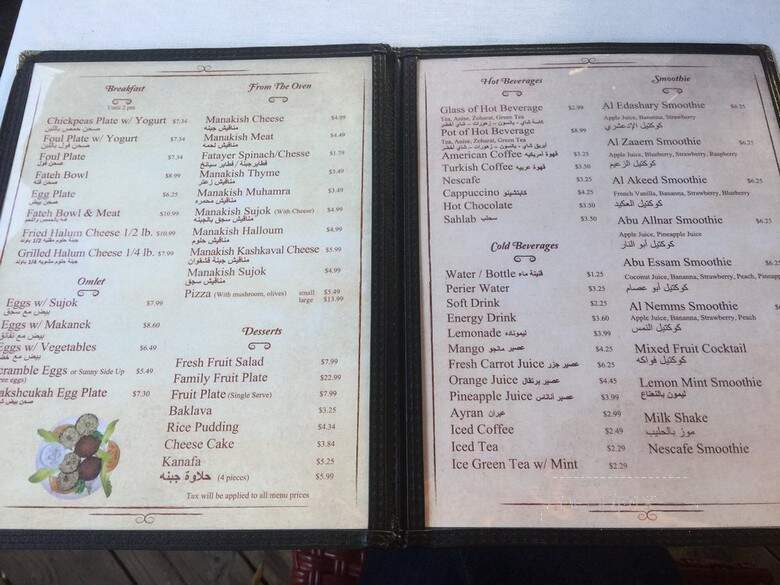 Breakfast
Until 2 pm
Chickpeas Plate w/ Yogurt $7.34
صحن حمص باللبن
Foul Plate w/ Yogurt $7.34
صحن فول باللبن
Foul Plate $7.34
صحن فول
Fateh Bowl $8.99
صحن فته
Egg Plate $6.25
صحن بيض
Fateh Bowl & Meat $10.99
Fried Halum Cheese 1/2 lb. $10.99
جبنة حلوم مقليه 1/2 باوند
Grilled Halum Cheese 1/4 lb. $7.99
جبنة حلوم مشويه 1/4 باوند
Omlet
Eggs w/ Sujok $7.99
بيض مع سجق
Eggs w/ Makanek $8.60
بيض مع نقانق
Eggs w/ Vegetables $6.49
Scramble Eggs or Sunny Side Up $5.49
eggs)
akshcukah Egg Plate $7.30
From The Oven
Manakish Cheese $4.99
مناقيش جبنه
Manakish Meat $4.49
مناقيش لحمه
Fatayer Spinach/Chesse $1.79
فطاير جبنه / فطاير سبانخ
Manakish Thyme $3.49
مناقيش زعتر
Manakish Muhamra $3.49
مناقيش محمره
Manakish Sujok (With Cheese) $4.99
مناقيش سجق بالجبنه
Manakish Halloum $4.99
مناقيش حلوم
Manakish Kashkaval Cheese $5.99
مناقيش جبنة قاشقوان
Manakish Sujok $4.99
مناقيش سجق
Pizza (With mushroom, olives) small $5.49
large $13.99
Desserts
Fresh Fruit Salad $7.99
Family Fruit Plate $22.99
Fruit Plate (Single Serve) $7.99
Baklava $3.25
Rice Pudding $4.34
Cheese Cake $3.84
Kanafa $5.25
حلاوة جبنه (4 pieces) $5.99
Tax will be applied to all menu prices
Hot Beverages
Glass of Hot Beverage $2.99
Tea, Anise, Zohurat, Green Tea
كاسة شاي - يانسون - زهورات - شاي اخضر
Pot of Hot Beverage $8.99
Tea, Anise, Zohurat, Green Tea
ابريق شاي - يانسون - زهورات - شاي اخضر
American Coffee قهوة امريكيه $3.00
Turkish Coffee قهوة عربيه $3.50
Nescafe $3.25
Cappuccino كابتشينو $4.00
Hot Chocolate $3.50
Sahlab سحلب $3.50
Cold Beverages
Water / Bottle قنينة ماء $1.25
Perier Water $3.25
Soft Drink $2.25
Energy Drink $3.60
Lemonade ليموناده $3.99
Mango عصير مانجو $4.25
Fresh Carrot Juice عصير جزر $6.25
Orange Juice عصير برتقال $4.45
Pineapple Juice عصير أناناس $3.99
Ayran عيران $2.99
Iced Coffee $2.49
Iced Tea $2.29
Ice Green Tea w/ Mint $2.29
Smoothie
Al Edashary Smoothie $6.25
Apple Juice, Bananna, Strawberry
كوكتيل الإدعشري
Al Zaaem Smoothie $6.25
Apple Juice, Blueburry, Strawberry, Raspberry
كوكتيل الزعيم
Al Akeed Smoothie $6.25
French Vanilla, Bananna, Strawberry, Blueberry
كوكتيل العكيد
Abu Allnar Smoothie $6.25
Apple Juice, Pineapple Juice
كوكتيل أبو النار
Abu Essam Smoothie $6.25
Coconut Juice, Bananna, Strawberry, Peach, Pineapp
كوكتيل أبو عصام
Al Nemms Smoothie $6.2
Apple Juice, Bananna, Strawberry, Peach
كوكتيل النمس
Mixed Fruit Cocktail
كوكتيل فواكه
Lemon Mint Smoothie
ليمون بالنعناع
Milk Shake
موز بالحليب
Nescafe Smoothie